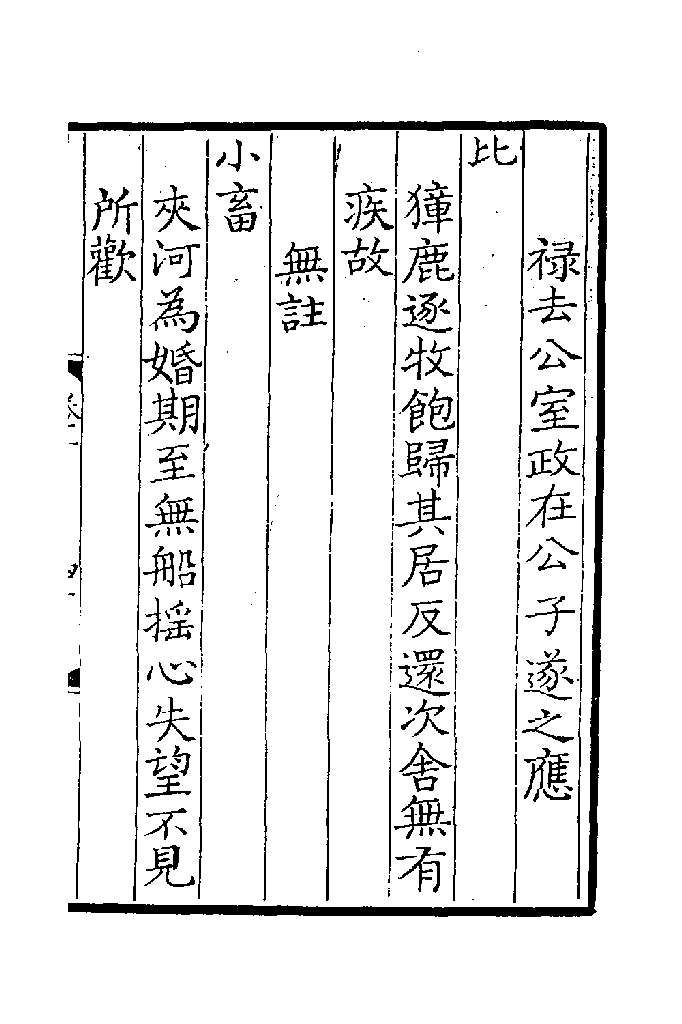 禄去公室政在公子遂之應
比
獐鹿逐牧飽歸其居反還次舍無有
疾故
無註
小畜
夾河為婚期至無船揺心失望不見
所歡